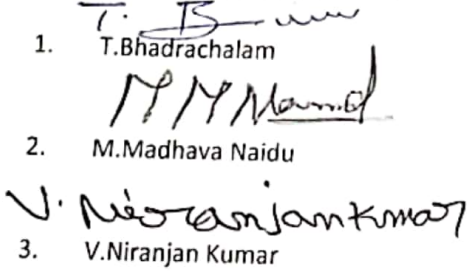 T. B
1. T.Bhadrachalam
M M
2. M.Madhava Naidu
V. Niranjankumar
3. V.Niranjan Kumar